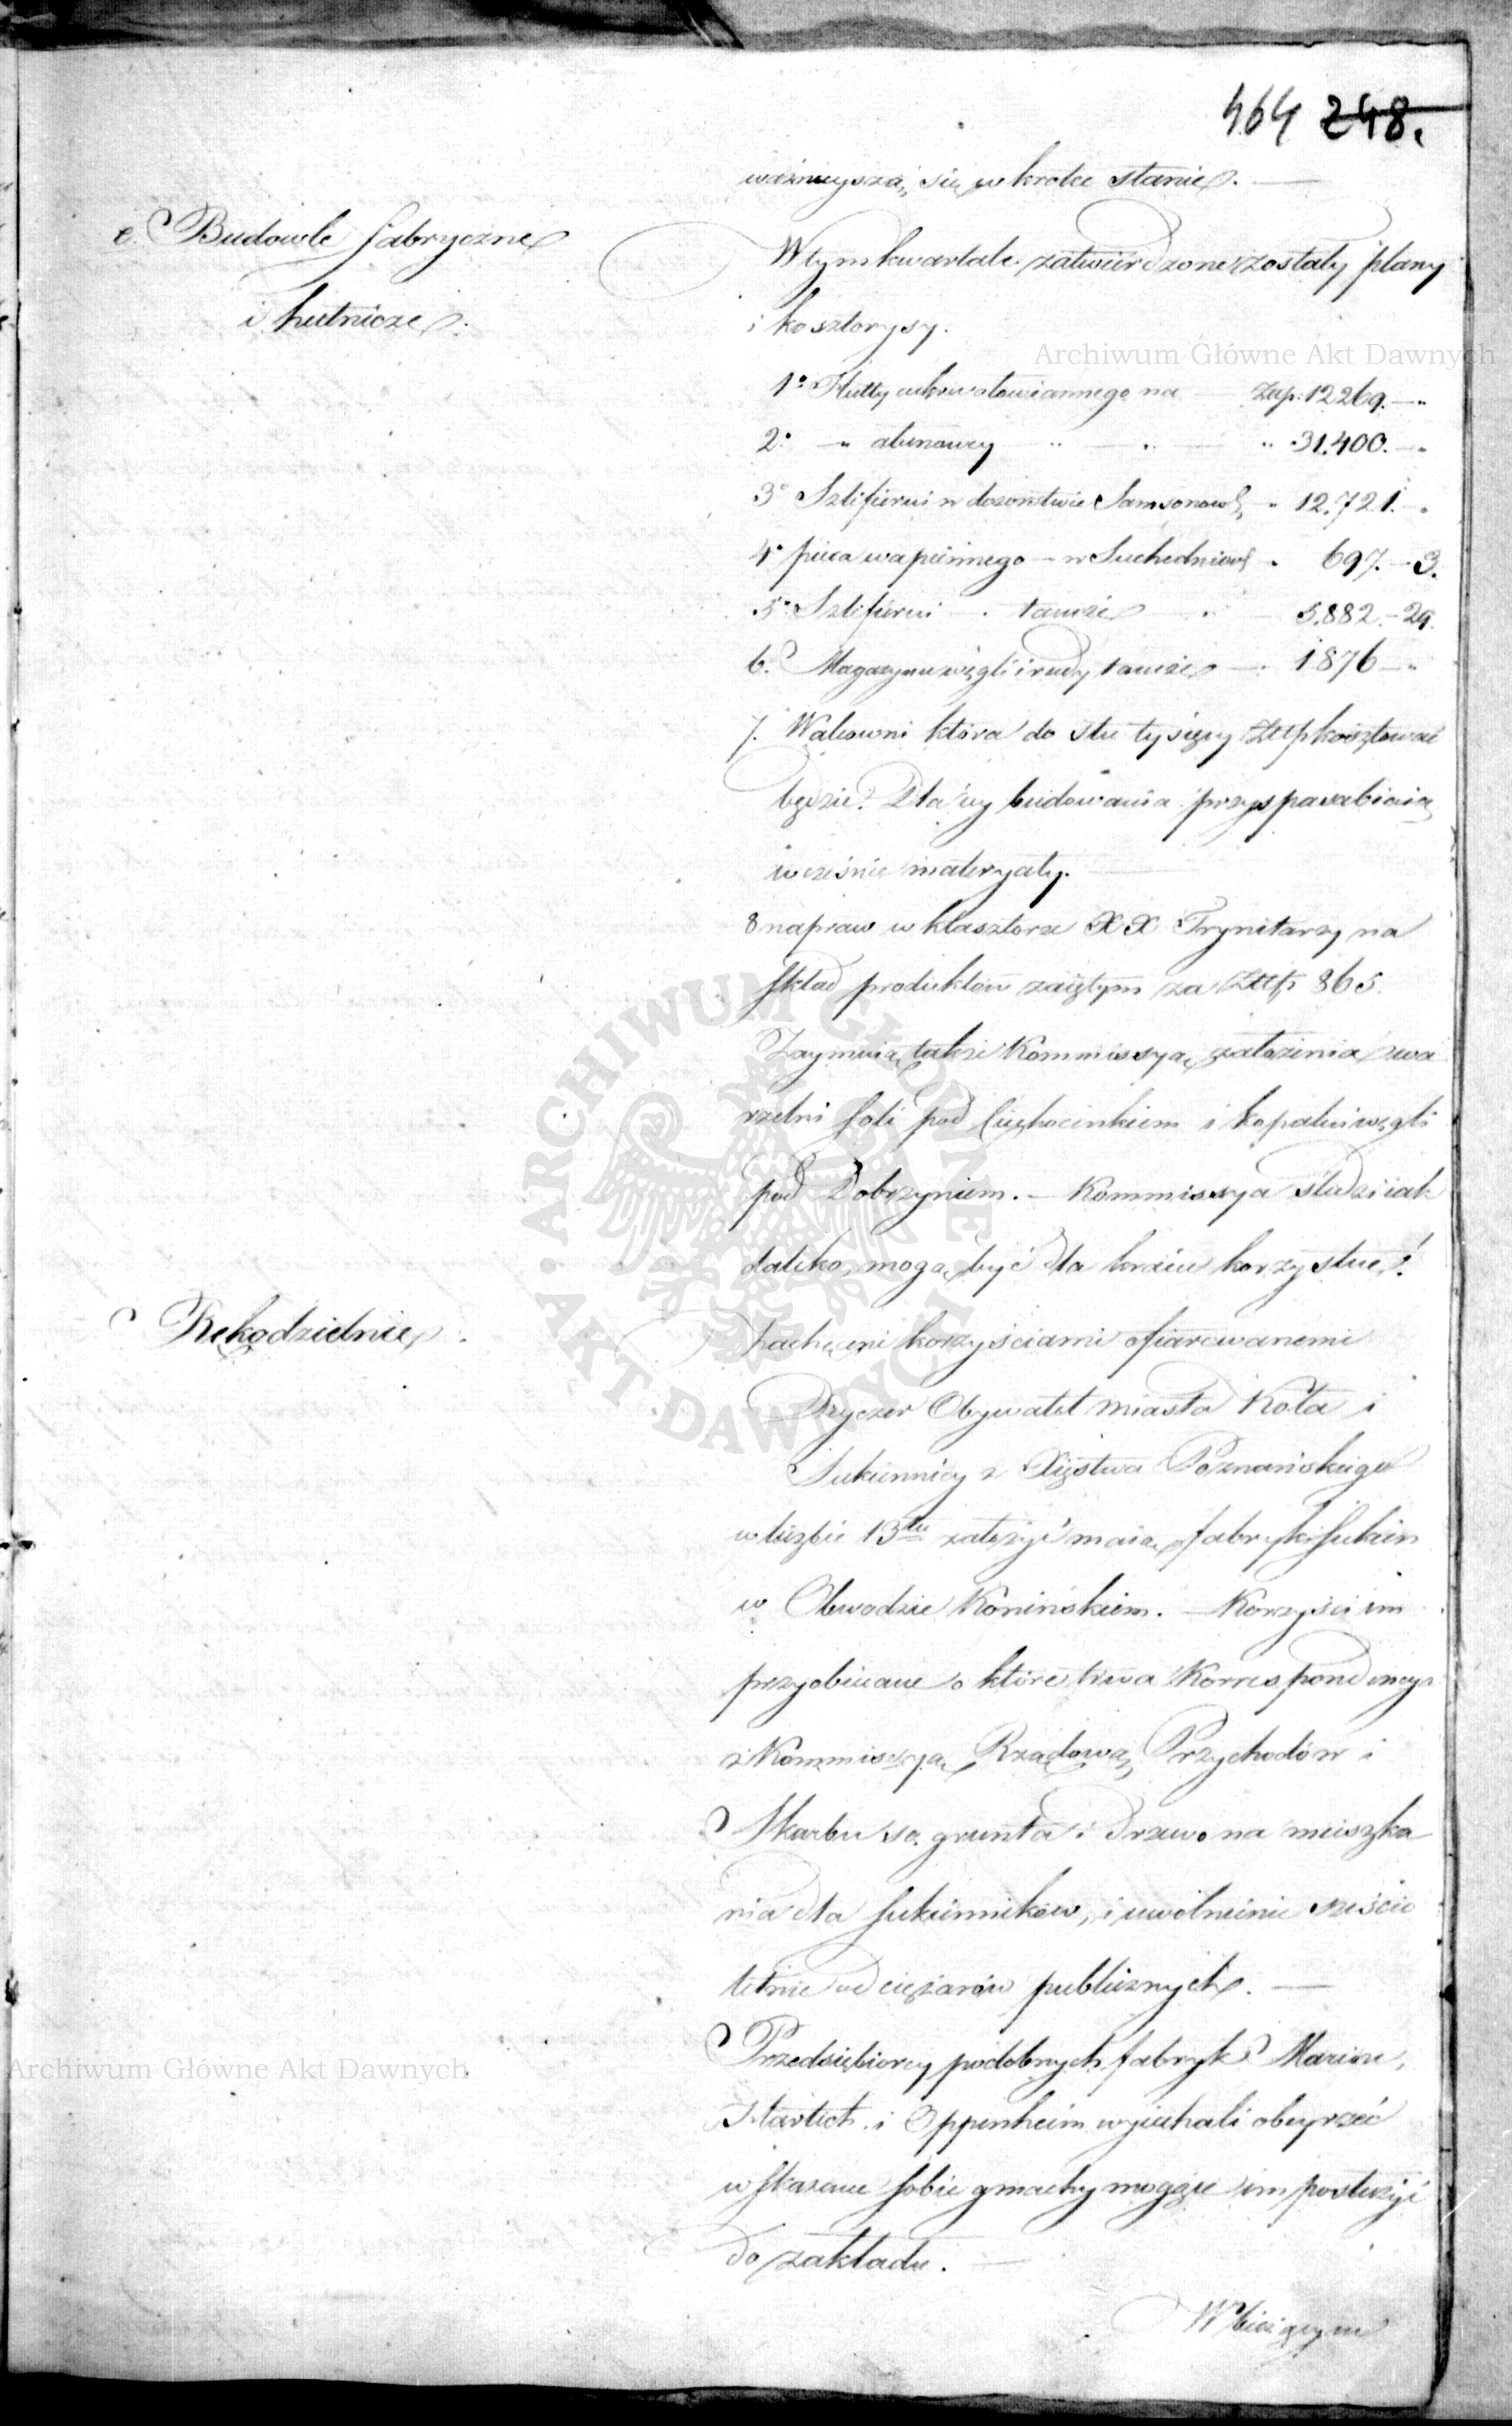 464 248.
ważnieyszą, się w krotce stanie. —
e. Budowle fabryczne
i hutnicze.
W tym kwartale zatwierdzone zostały plany
i kosztorysy.
1º Hutty cukru ołowiannego na Złp. 12269. — „
2º — „ ałunowey „ — „ — „ 31.400. — „
3º Szlifierni w dozorstwie Samsonow „ 12.721. — „
4º pieca wapiennego — w Suchedniow „ 697. — 3.
5º Szlifierni — „ tamże „ — 5.882. — 29.
6. Magazynu węgli i rudy tamże — „ 1876 — „
7. Walcowni która do stu tysięcy Złtp kosztować
będzie. Dla iey budowania przysposabiaią
wcześnie materyały.
8 napraw w klasztorze XX Trynitarzy na
skład produktów zaiętym za Złtp 865.
Zaymuią także Kommissyą założenia wa
rzelni soli pod Ciechocinkiem i kopalni węgli
pod Dobrzyniem. — Kommissya śledzi iak
daleko, mogą być dla kraiu korzystne.
Rękodzielnie.
Zachęceni korzyściami ofiarowanemi
Dreyczer Obywatel miasta Koła i
Sukiennicy z Xięstwa Poznańskiego
w liczbie 13tu założyć maią fabryki sukien
w Obwodzie Konińskiem. — Korzyści im
przyobiecane o które trwa Korrespondencya
z Kommissyą Rządową Przychodów i
Skarbu są grunta i drzewo na mieszka
nia dla sukienników, i uwolnienie sześcio
letnie od ciężarów publicznych. —
Przedsiębiorcy podobnych fabryk Marine,
Hartich i Oppenheim wyiechali obeyrzeć
wskazane sobie gmachy mogące im posłużyć
do zakładu. —
W bieżącym
Archiwum Główne Akt Dawnych
Archiwum Główne Akt Dawnych
ARCHIWUM GŁÓWNE AKT DAWNYCH